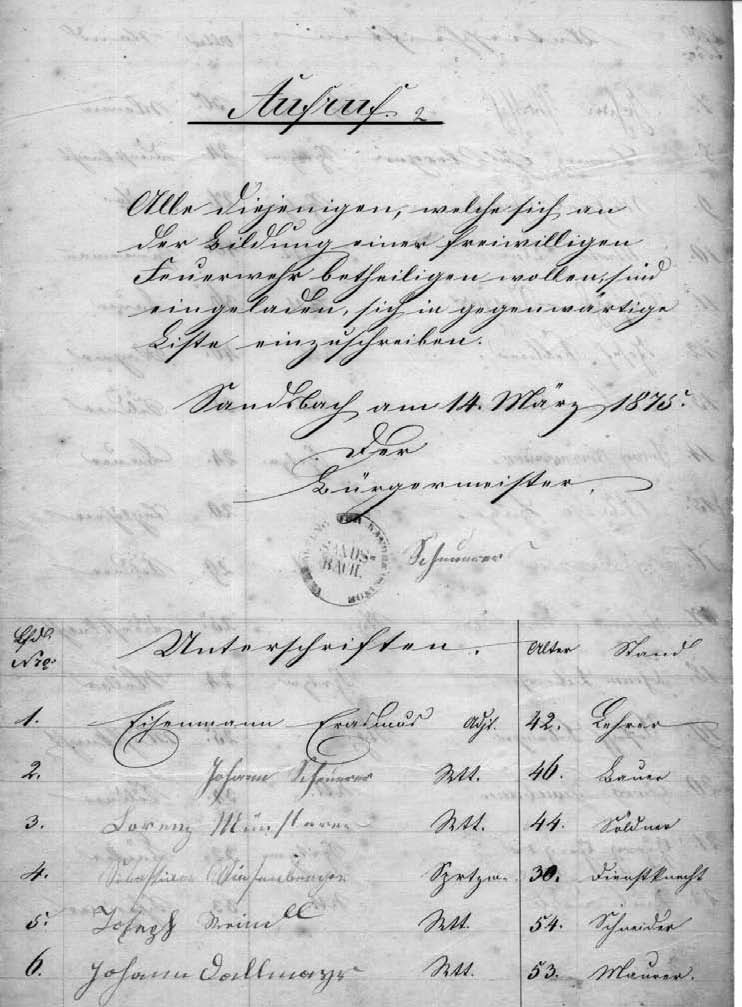 Aufruf.
Alle diejenigen, welche sich an
der Bildung einer freiwilligen
Feuerwehr betheiligen wollen, sind
eingeladen, sich in gegenwärtige
Liste einzuschreiben.
Sandsbach am 14. März 1875.
Der
Bürgermeister,
SANDS-
BACH.
Scheuerer
Lfde Nro. Unterschriften. Alter Stand
1. Eisenmann Erasmus Adjt. 42. Lehrer
2. Johann Scheuerer Mtt. 46. Bauer
3. Lorenz Münsterer Mtt. 44. Söldner
4. Sebastian 30. Dienstknecht
5. Joseph Mtt. 54. Schneider
6. Johann Dallmayr Mtt. 53. Maurer.